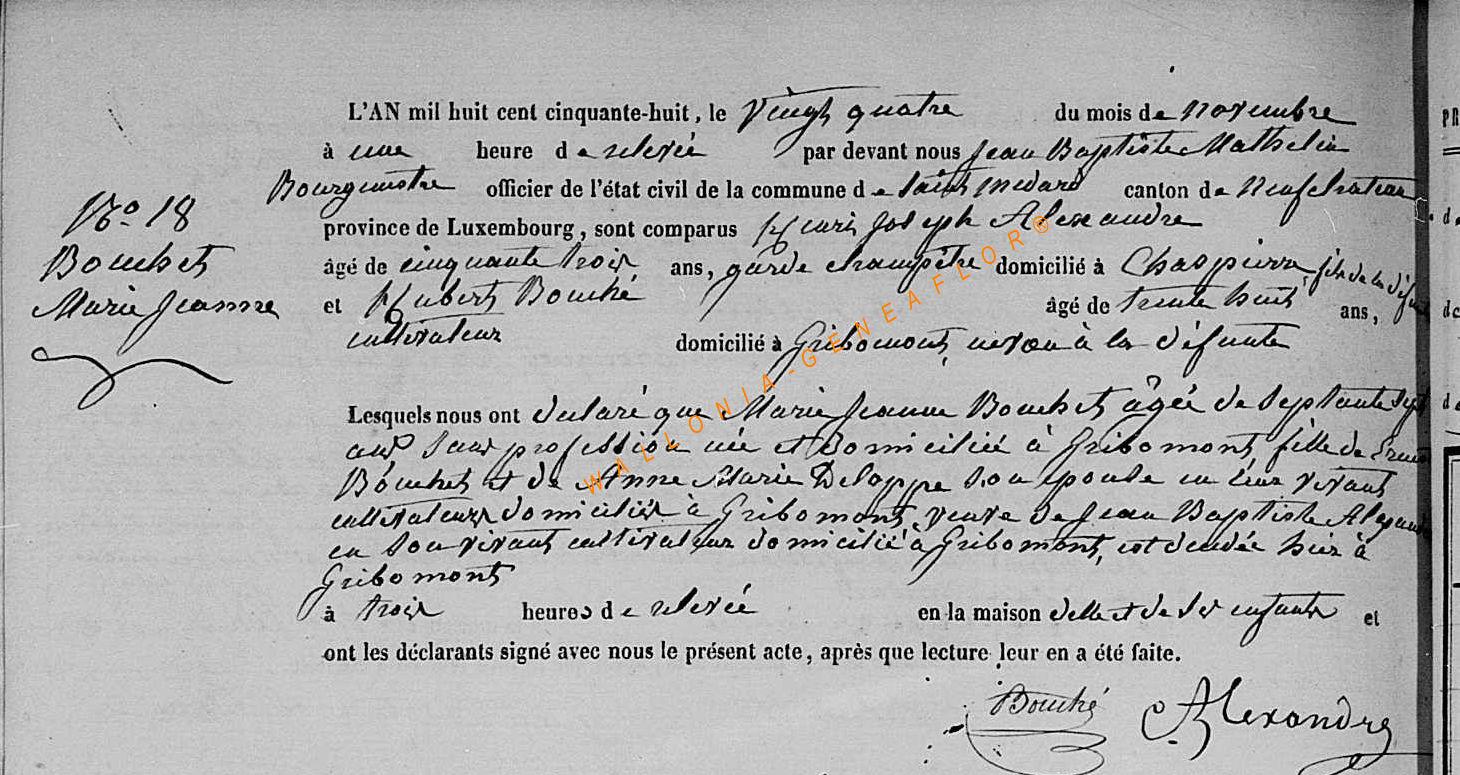 L'AN mil huit cent cinquante-huit, le Vingt quatre du mois de novembre
à une heure de relevée par devant nous Jean Baptiste Mathelin
Bourgmestre officier de l'état civil de la commune de Saint Medard canton de Neufchateau
province de Luxembourg, sont comparus Henri Joseph Alexandre
âgé de cinquante trois ans, garde champêtre domicilié à Chaspierre fils de la défunte
et Hubert Bouché âgé de trente huit ans,
cultivateur domicilié à Gribomont, neveu à la défunte
N° 18
Bouchet
Marie Jeanne
Lesquels nous ont declaré que Marie Jeanne Bouchet âgée de septante sept
ans sans profession née et domiciliée à Gribomont, fille de
Bouchet et de Anne Marie Deloppe son epouse en leur vivant
cultivateurs domiciliés à Gribomont, veuve de Jean Baptiste Alexandre
en son vivant cultivateur domicilié à Gribomont, est décédée hier à
Gribomont
à trois heures de relevée en la maison d'elle et de ses enfants et
ont les déclarants signé avec nous le présent acte, après que lecture leur en a été faite.
Bouché Alexandre
WALLONIA-GENEAFLOR®
PR